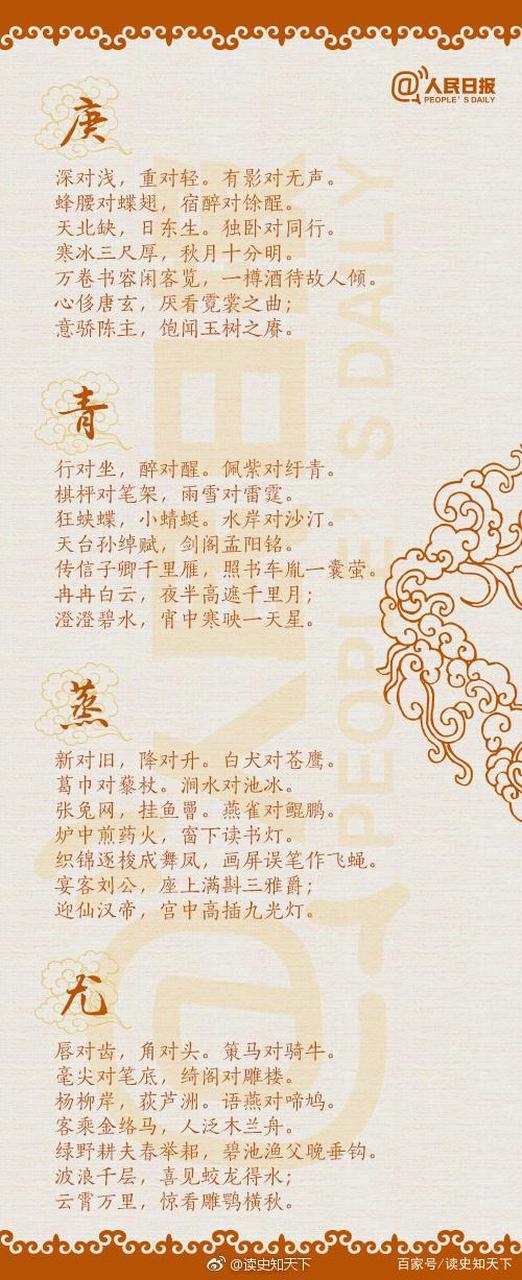 @人民日报
PEOPLE'S DAILY
庚
深对浅，重对轻。有影对无声。
蜂腰对蝶翅，宿醉对馀酲。
天北缺，日东生。独卧对同行。
寒冰三尺厚，秋月十分明。
万卷书容闲客览，一樽酒待故人倾。
心侈唐玄，厌看霓裳之曲；
意骄陈主，饱闻玉树之赓。
青
行对坐，醉对醒。佩紫对纡青。
棋枰对笔架，雨雪对雷霆。
狂蛱蝶，小蜻蜓。水岸对沙汀。
天台孙绰赋，剑阁孟阳铭。
传信子卿千里雁，照书车胤一囊萤。
冉冉白云，夜半高遮千里月；
澄澄碧水，宵中寒映一天星。
蒸
新对旧，降对升。白犬对苍鹰。
葛巾对藜杖，涧水对池冰。
张兔网，挂鱼罾。燕雀对鲲鹏。
炉中煎药火，窗下读书灯。
织锦逐梭成舞凤，画屏误笔作飞蝇。
宴客刘公，座上满斟三雅爵；
迎仙汉帝，宫中高插九光灯。
尤
唇对齿，角对头。策马对骑牛。
毫尖对笔底，绮阁对雕楼。
杨柳岸，荻芦洲。语燕对啼鸠。
客乘金络马，人泛木兰舟。
绿野耕夫春举耜，碧池渔父晚垂钩。
波浪千层，喜见蛟龙得水；
云霄万里，惊看雕鹗横秋。
@人民日报
PEOPLE'S DAILY
@读史知天下
百家号/读史知天下